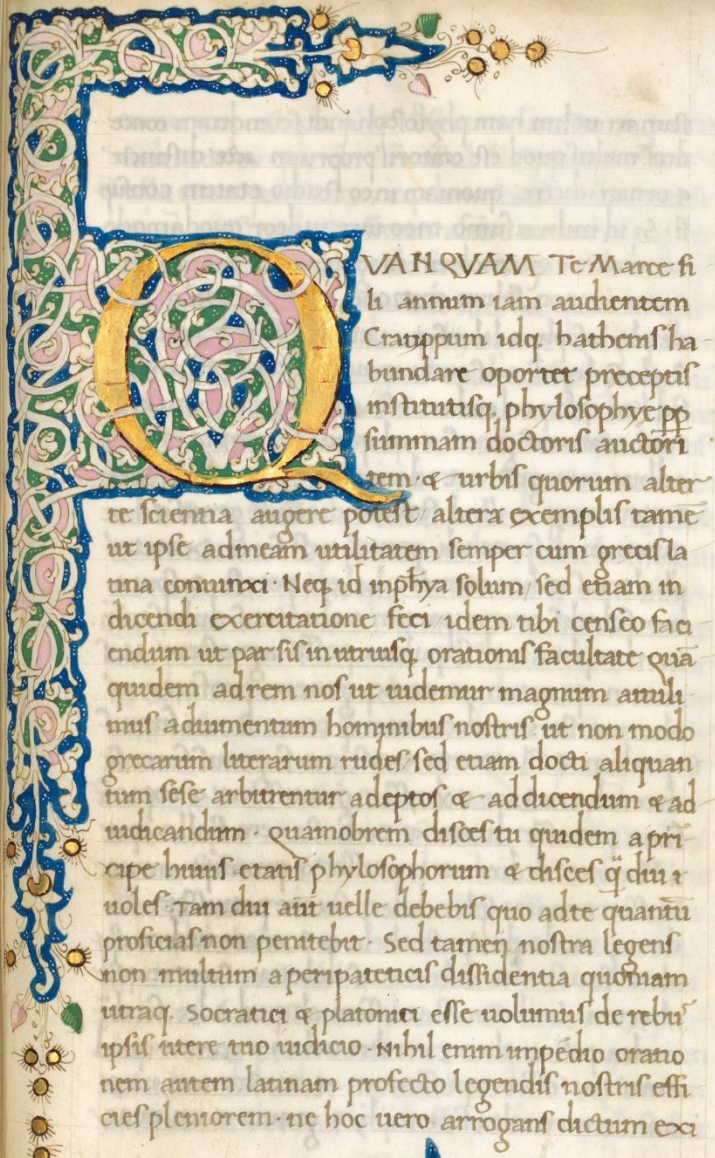 QVANQVAM Te Marce fi
li annum iam audientem
Cratippum idq; hathenis ha
bundare oportet preceptis
institutisq; phylosophye pp̄
summam doctoris auctori
tem & urbis quorum alter
te scientia augere potest / altera exemplis tamē
ut ipse ad meam utilitatem semper cum grecis la
tina coniunxi · Neq; id in ph̄ya solum / sed etiam in
dicendi exercitatione feci / idem tibi censeo faci
endum ut par sis in utriusq; orationis facultate quā
quidem ad rem nos ut uidemur magnum attuli
mus adiumentum hominibus nostris ut non modo
grecarum literarum rudes sed etiam docti aliquan
tum sese arbitrentur adeptos & ad dicendum & ad
iudicandum · quamobrem disces tu quidem a pri̅
cipe huius etatis phylosophorum & disces q̄ diu
uoles · Tam diu aūt uelle debebis quo ad te quantū
proficias non penitebit · Sed tamen nostra legens
non multum a peripateticis dissidentia quoniam
utraq; Socratici & platonici esse uolumus de rebus
ipsis utere tuo iudicio · Nihil enim impedio oratio
nem autem latinam profecto legendis nostris effi
cies pleniorem · ne hoc uero arrogans dictum exi